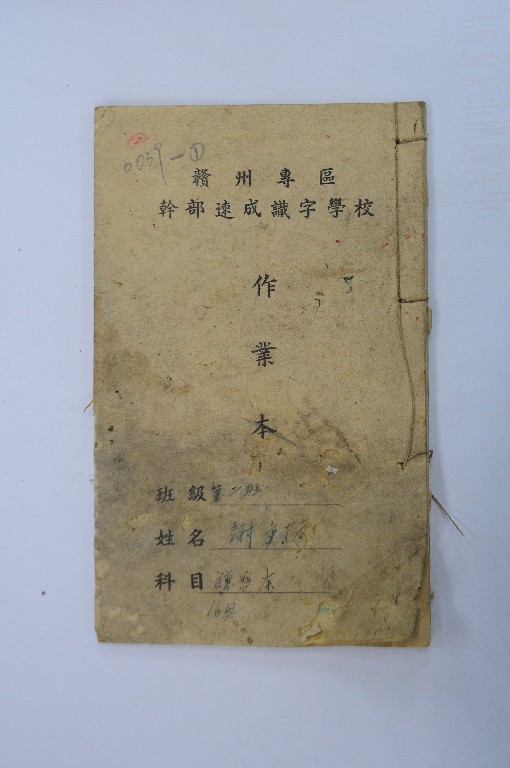 0039-①
贛州專區
幹部速成識字學校
作業本
班級 第二班
姓名 謝
科目 練習本